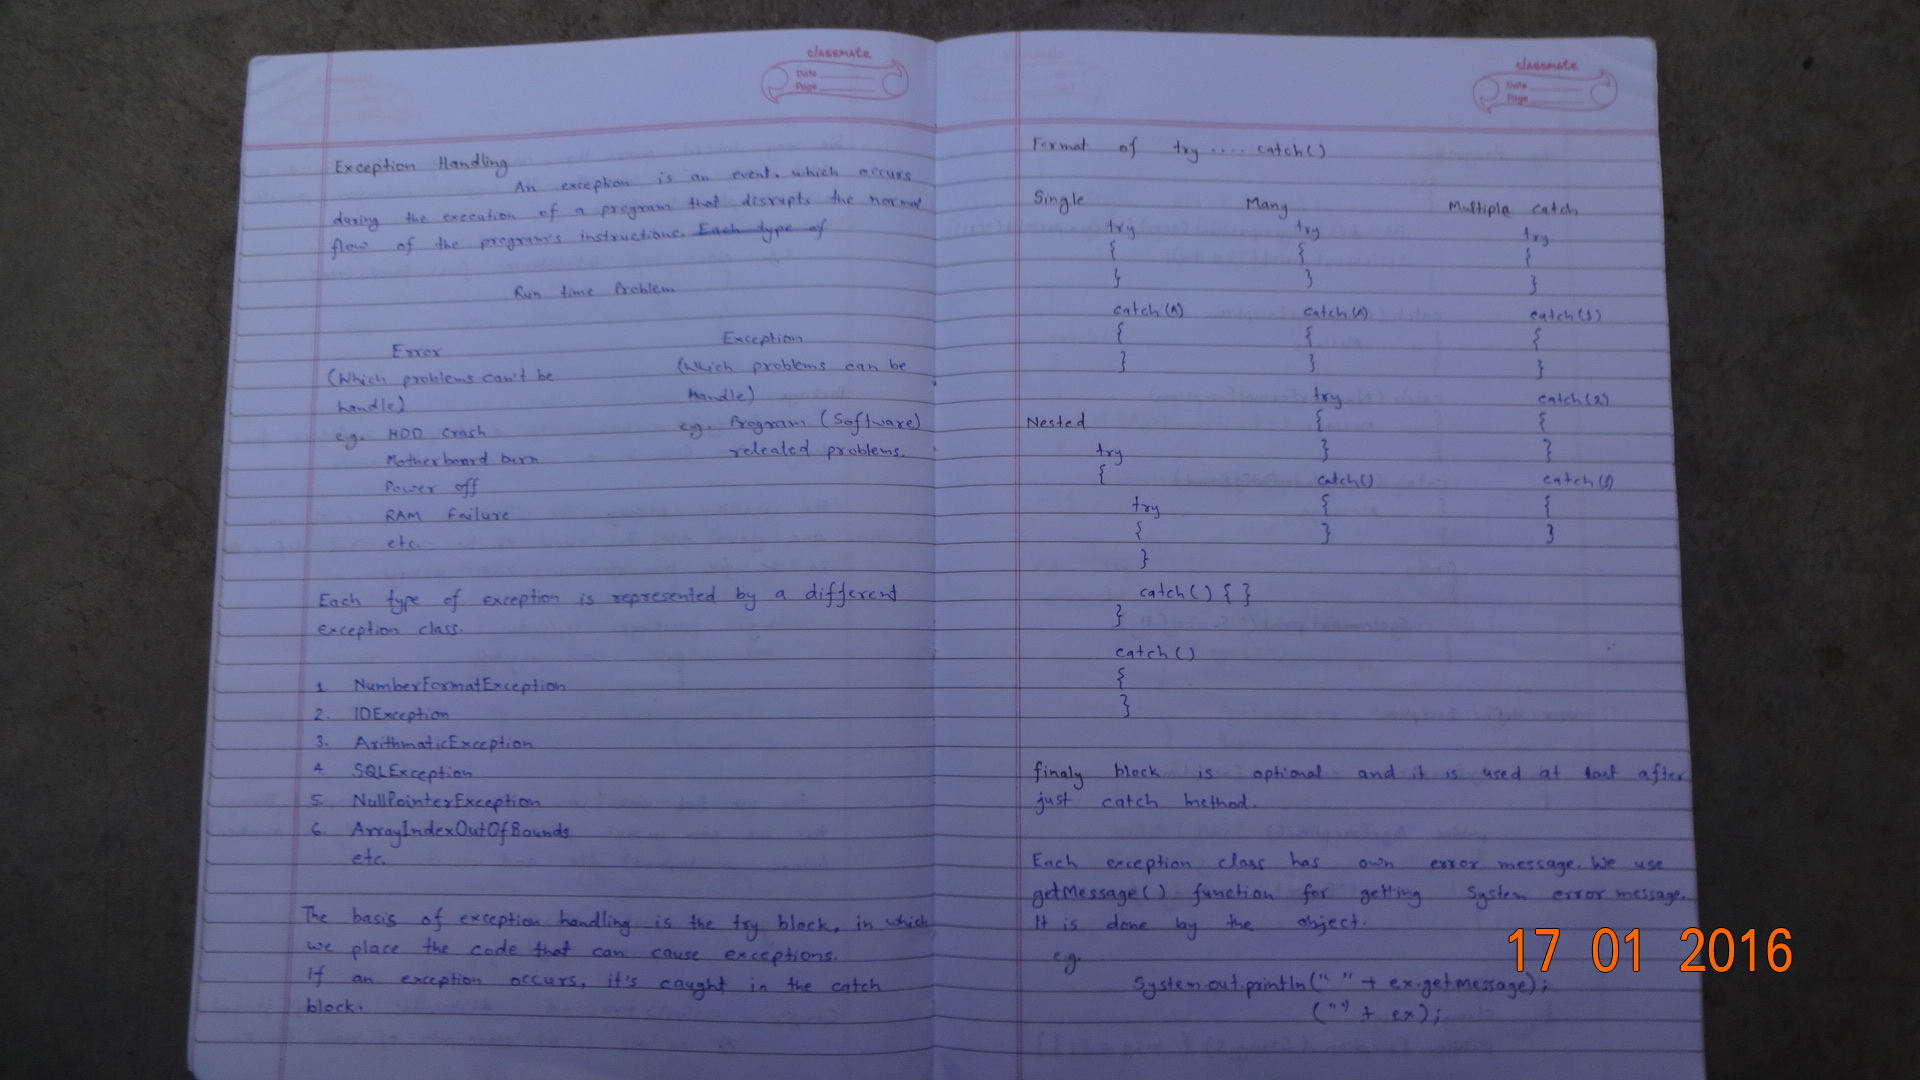 classmate
Date
Page
Exception Handling
An exception is an event, which occurs
during the execution of a program that disrupts the normal
flow of the program's instructions. Each type of
Run time Problem
Error
(Which problems can't be
handle)
e.g. HDD crash
Motherboard burn
Power off
RAM Failure
etc.
Exception
(Which problems can be
Handle)
e.g. Program (Software)
releated problems.
Each type of exception is represented by a different
exception class.
1. NumberFormatException
2. IOException
3. ArithmaticException
4 SQLException
5. NullPointerException
6. ArrayIndexOutOfBounds
etc.
The basis of exception handling is the try block, in which
we place the code that can cause exceptions.
If an exception occurs, it's caught in the catch
block.
classmate
Date
Page
Format of try .... catch()
Single
try
{
}
catch(A)
{
}
Many
try
{
}
catch(A)
{
}
try
{
}
catch()
{
}
Multiple catch
try
{
}
catch(1)
{
}
catch(2)
{
}
catch()
{
}
Nested
try
{
try
{
}
catch() { }
}
catch()
{
}
finaly block is optional and it is used at last after
just catch method.
Each exception class has own error message. We use
getMessage() function for getting System error message.
It is done by the object.
e.g.
System.out.println(" " + ex.getmessage);
(" ") + ex);
17 01 2016